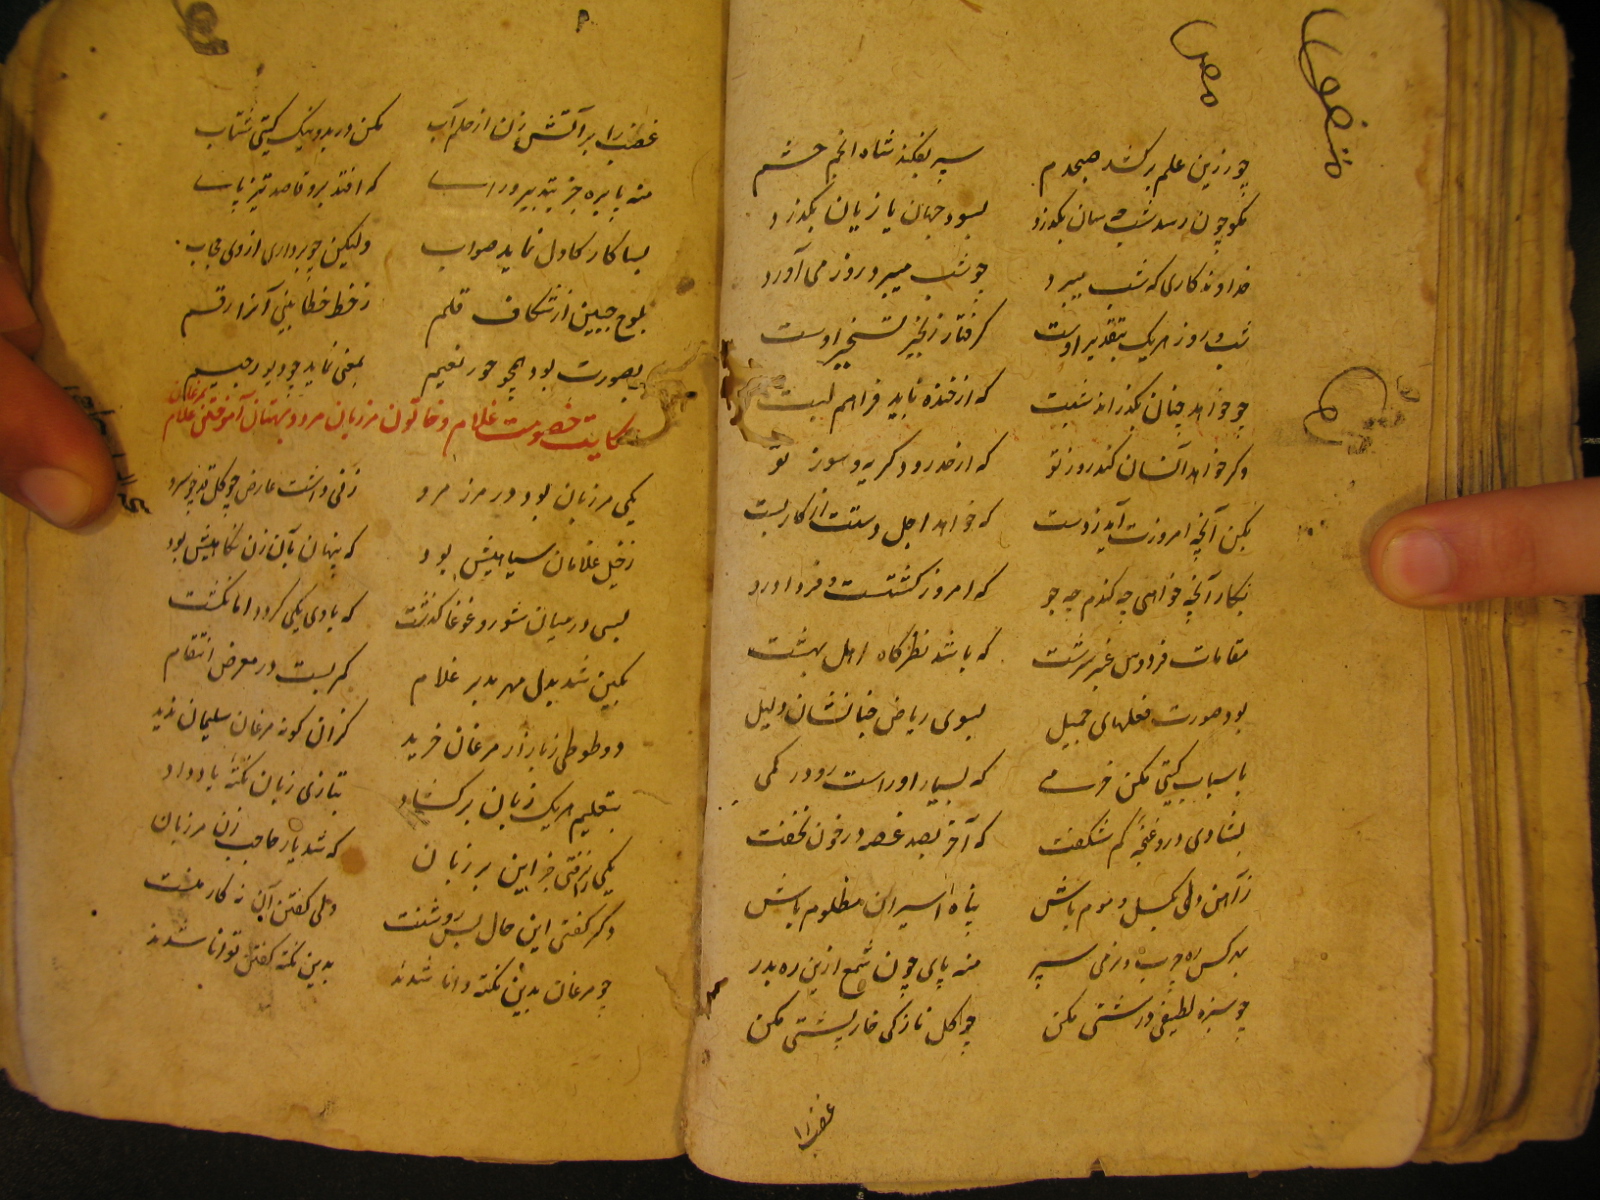 چو زرین علم برکشد صبحدم سپر بفکند شاه انجم حشم
مگو چون رسد شب چه سان بگذرد بسود جهان یا زیان بگذرد
خداوندکاری که شب میبرد چو شب میبرد روز می آورد
شب و روز هریک بتقدیر اوست گرفتار زنجیر تسخیر اوست
چو خواهد چنان بگذراند شبت که از خنده ناید فراهم لبت
وگر خواهد آنسان کند روز تو که از حد رود گریه و سوز تو
بکن آنچه امروزت آید ز دست که خواهد اجل دستت از کار بست
بکار آنچه خواهی چه گندم چه جو که امروز کشتست و فردا درو
مقامات فردوس عنبر سرشت که باشد نظرگاه اهل بهشت
بود صورت فعلهای جمیل بسوی ریاض جنانشان دلیل
باسباب گیتی مکن خرمی که بسیار او راست رو در کمی
بشادی درو غنچهٔ کم شکفت که آخر بصد غصه در خون نخفت
ز آهن دلی بگسل و موم باش پناه اسیران مظلوم باش
بهر کس ره چرب و نرمی سپر منه پای چون شمع ازین ره بدر
چو سبزه لطیفی درشتی مکن چو گل نازکی خارپشتی مکن
غضب را
غضب را بر آتش بزن از حلم آب مکن در بد و نیک گیتی شتاب
منه پا بره جز بتدبیر و راسے که افتد برو قاصد تیز پاے
بسا کار کاول نماید صواب ولیکن چو برداری از وی حجاب
بلوح جبین از شکاف قلم ز خط خطا بینی آنرا رقم
بصورت بود همچو حور نعیم بمعنی نماید چو دیو رجیم
حکایت خصومت غلام و خاتون مرزبان مرو و بهتان آموختن غلام مرغان
یکی مرزبان بود در مرز مرو زنی داشت عارض چو گل قد چو سرو
ز خیل غلامان سیاهیش بود که پنهان بآن زن نگاهیش بود
بسی در میان شور و غوغا گذشت که با وی یکی گردد اما نگشت
بکین شد بدل مهر بدبر غلام کمر بست در معرض انتقام
دو طوطی ز بازار مرغان خرید کزان گونه مرغان سلیمان ندید
بتعلیم هریک زبان برگشاد بتازی زبان نکته یاد داد
یکی را نرفتی جز این بر زبان که شد یار حاجب زن مرزبان
دگر گفتی این حال بس روشنست ولی گفتن آن نه کار منست
چو مرغان بدین نکته دانا شدند بدین نکته گفتن توانا شدند